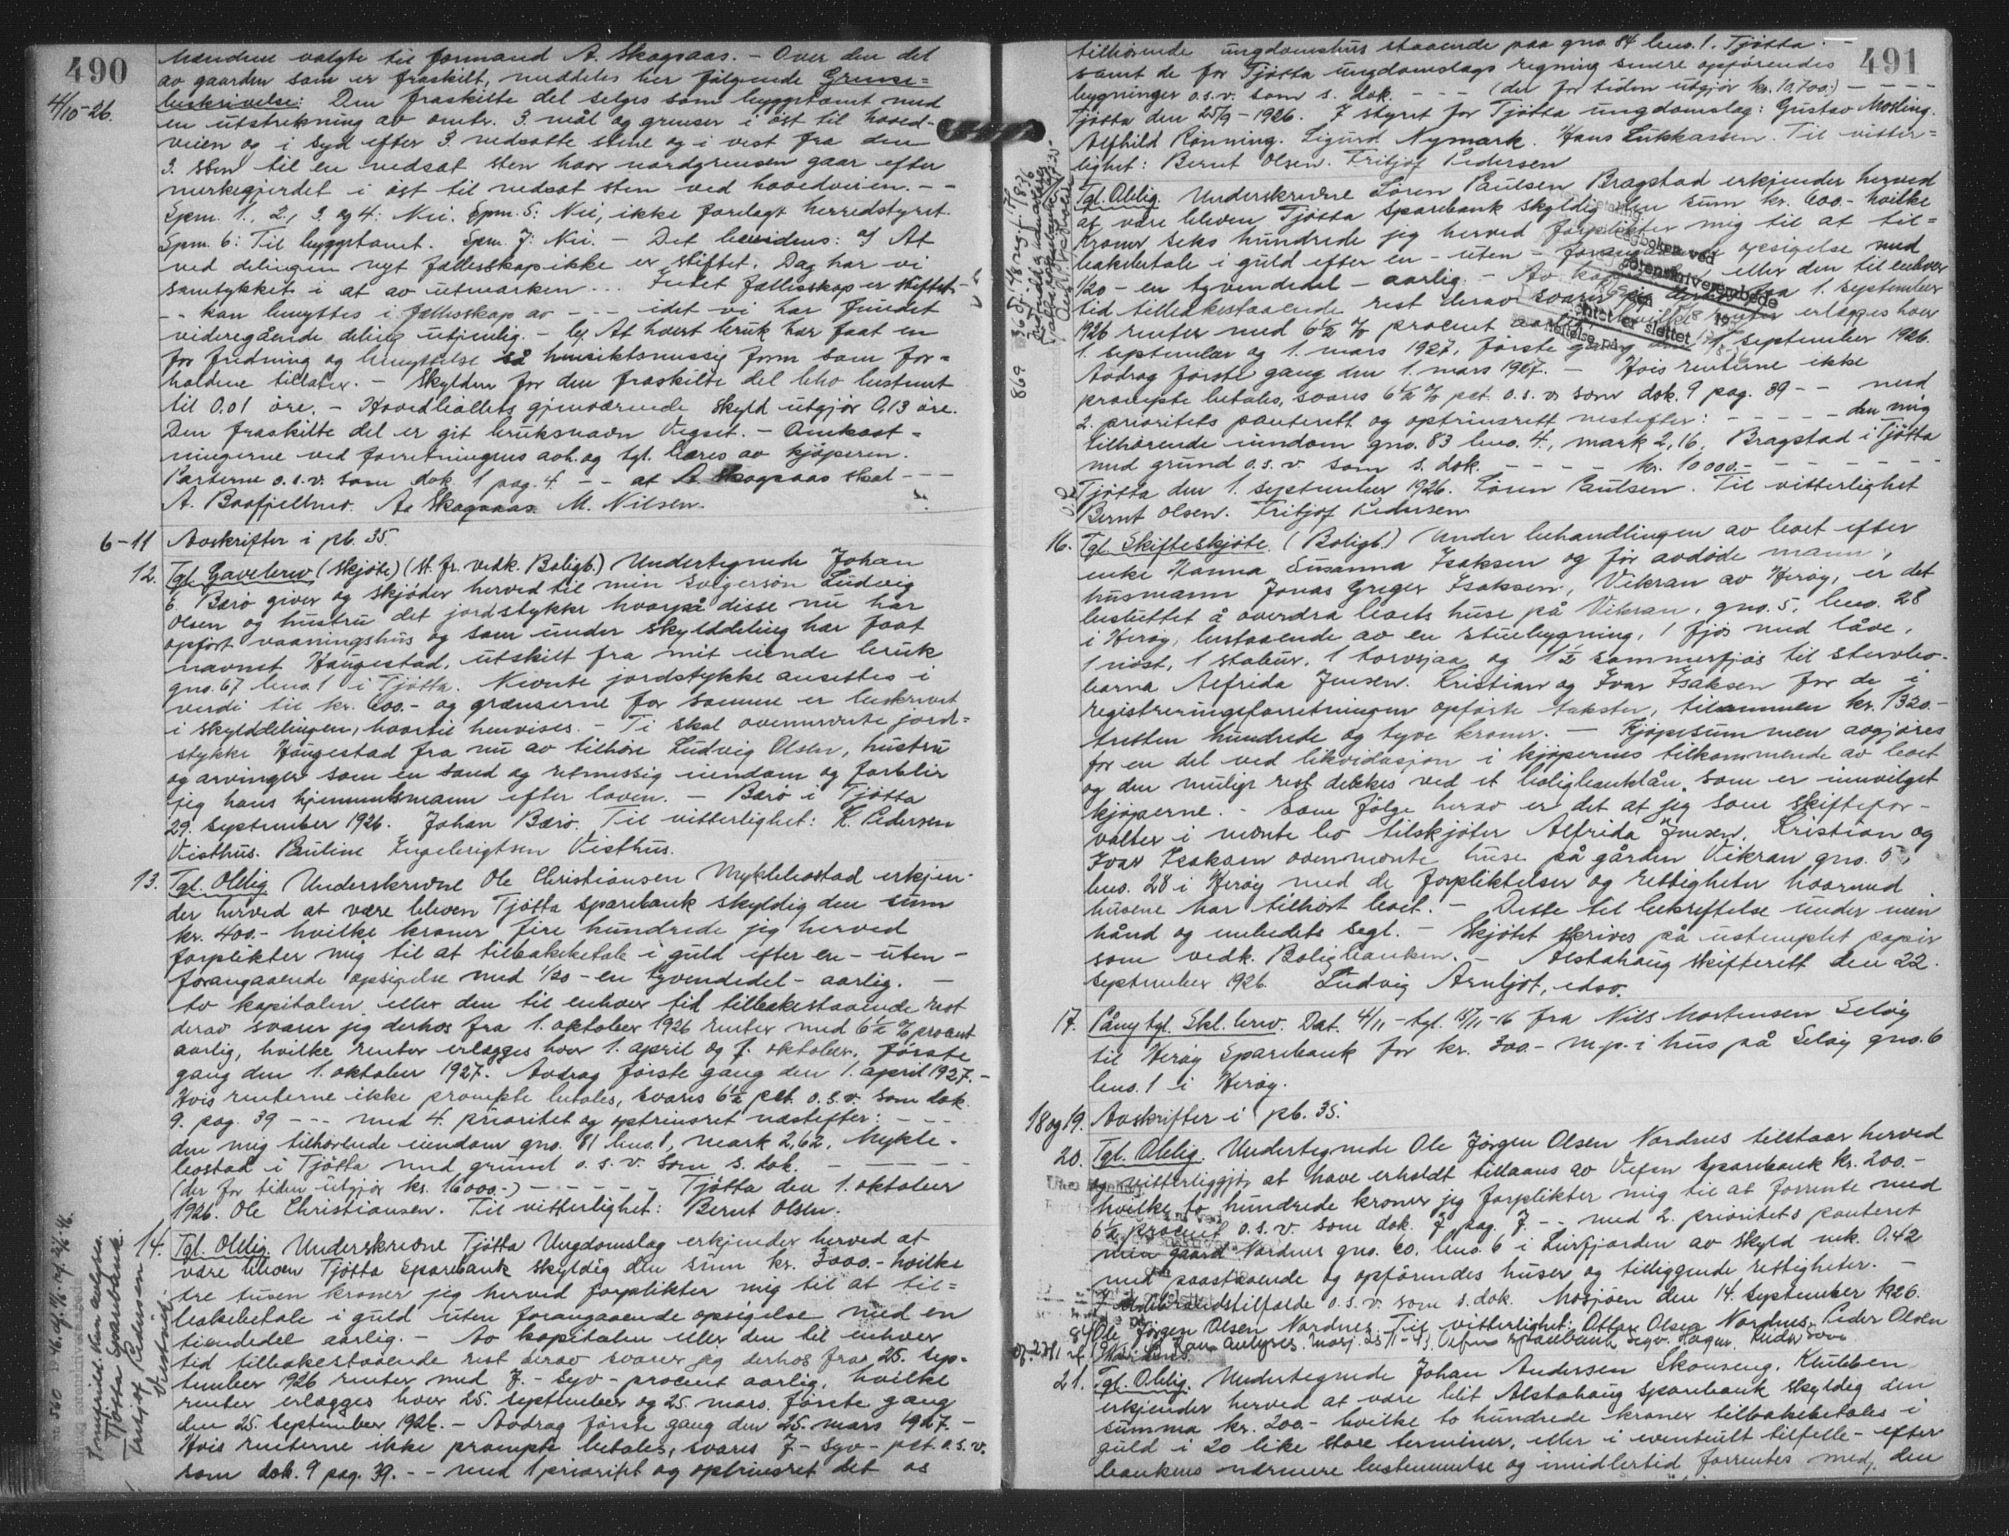 490
4/10-26.
mændene valgte til formand A. Skogsaas. - Over den del
av gaarden som er fraskilt, meddeles her følgende Grense=
beskrivelse: Den fraskilte del selges som byggetomt med
en utstrekning av omtr. 3 mål og grenser i øst til hoved-
veien og i syd efter 3 nedsatte stene og i vest fra den
3. sten til en nedsat sten hvor nordgrensen gaar efter
merkegjerdet i øst til nedsat sten ved hovedveien. - -
Spm. 1, 2, 3 og 4: Nei. Spm. 5: Nei, ikke forelagt herredstyret.
Spm. 6: Til byggetomt. Spm. 7: Nei. - Det bevidnes: a) At
ved delingen nyt fællesskap ikke er stiftet. Dog har vi
samtykket i at av utmarken ... Intet fællesskap er stiftet -
- - kan benyttes i fællesskap av - - - idet vi har fundet
videregående deling utjenlig. - b) At hvert bruk har faat en
for fredning og benyttelse så hensiktsmessig form som for=
holdene tillater. - Skylden for den fraskilte del blev bestemt
til 0.01 øre. - Hovedbøllets gjenværende skyld utgjør 0.13 øre.
Den fraskilte del er git bruksnavn Vegset. - Omkost=
ningerne ved forretningens avh. og tgl. bæres av kjøperen.
Parterne o.s.v. som dok. 1 pag. 4 - - at A Skogsaas skal - - -
A. Baafjellmo. A. Skogsaas. M. Nilsen.
6-11 Avskrifter i pb. 35.
12. Tgl. Gavebrev (skjøte) (st. fr. vedk. Boligb.) Undertegnede Johan
Bærø giver og skjøder herved til min svigersøn Ludvig
Olsen og hustru det jordstykke hvorpå disse nu har
opført vaaningshus og som under skylddeling har faat
navnet Haugestad, utskilt fra mit eiende bruk
gno. 67 bno. 1 i Tjøtta. Nevnte jordstykke ansettes i
verdi til kr. 600.- og grænserne for samme er beskrevet
i skylddelingen, hvortil henvises. - Ti skal ovennævnte jord=
stykke Haugestad fra nu av tilhøre Ludvig Olsen, hustru
og arvinger som en sand og retmessig eiendom og forblir
jeg hans hjemmelsmann efter loven. - Bærø i Tjøtta
29. september 1926. Johan Bærø. Til vitterlighet: K. Pedersen
Visthus. Pauline Engebrigtsen Visthus.
13. Tgl. Oblig. Underskrevne Ole Christiansen Myklebostad erkjen-
der herved at være bleven Tjøtta sparebank skyldig den sum
kr. 400.- hvilke kroner fire hundrede jeg herved
forplikter mig til at tilbakebetale i guld efter en - uten -
forangaaende opsigelse med 1/20 - en tyvendedel - aarlig. -
Av kapitalen eller den til enhver tid tilbakestaaende rest
derav svarer jeg derhos fra 1. oktober 1926 renter med 6½ % procent
aarlig, hvilke renter erlægges hver 1. april og 1. oktober, første
gang den 1. oktober 1927. Avdrag første gang den 1. april 1927. -
Hvis renterne ikke prompte betales, svares 6½ pct. o.s.v. som dok.
9. pag. 39 - - - med 4. prioritet og optrinsret næstefter: - - -
den mig tilhørende eiendom gno. 81 bno. 1, mark 2,62, Mykle-
bostad i Tjøtta med grund o.s.v. som s. dok. - - - - - -
(der for tiden utgjør kr. 16000.-) - - - - - Tjøtta den 1. oktober
1926. Ole Christiansen. Til vitterlighet: Bernt Olsen.
14. Tgl. Oblig. Underskrevne Tjøtta Ungdomslag erkjender herved at
være bleven Tjøtta Sparebank skyldig den sum kr. 3000.- hvilke
tre tusen kroner jeg herved forplikter mig til at til=
bakebetale i guld uten forangaaende opsigelse med en
tiendedel aarlig. - Av kapitalen eller den til enhver
tid tilbakestaaende rest derav svarer jeg derhos fra 25. sep-
tember 1926 renter med 7 - syv - procent aarlig, hvilke
renter erlægges hver 25. september og 25. mars. første gang
den 25. september 1926. - Avdrag første gang den 25. mars 1927. -
Hvis renterne ikke prompte betales, svares 7 - syv - pct. o.s.v.
som dok. 9 pag. 39. - - med 1 prioritet og optrinsret det os
Kan avlyses.
Tjøtta Sparebank.
Fritjof Pedersen
491
tilhørende ungdomshus staaende paa gno. 84 bno. 1. Tjøtta. -
samt de for Tjøtta ungdomslags regning senere opførendes
bygninger o.s.v. som s. dok. - - - (der for tiden utgjør kr. 10,700.) - - - -
Tjøtta den 25/9 - 1926. I styret for Tjøtta ungdomslag: Gustav Mosling.
Alfhild Rønning. Sigurd Nymark. Hans Lukkassen. Til vitter=
lighet: Bernt Olsen. Fritjof Pedersen
Tgl. Oblig. Underskrevne Søren Paulsen Bragstad erkjender herved
at være bleven Tjøtta Sparebank skyldig den sum kr. 600.- hvilke
kroner seks hundrede jeg herved forplikter mig til at til=
bakebetale i guld efter en - uten - forangaaende opsigelse med
1/20 - en tyvendedel - aarlig. - Av kapitalen eller den til enhver
tid tilbakestaaende rest derav svarer jeg derhos fra 1. september
1926 renter med 6½ % procent aarlig, hvilke renter erlægges hver
1. september og 1. mars 1927, første gang den 1. september 1926.
Avdrag første gang den 1. mars 1927. - Hvis renterne ikke
prompte betales, svares 6½ % pct. o.s.v. som dok. 9 pag. 39 - - med
2. prioritets panterett og optrinsrett nestefter: - - - - - den mig
tilhørende eiendom gno. 83 bno. 4, mark 2,16, Bragstad i Tjøtta
med grund o.s.v. som s. dok. - - - - kr. 10000.- - - - - -
Tjøtta den 1. september 1926. Søren Paulsen. Til vitterlighet
Bernt Olsen. Fritjof Pedersen
16. Tgl. Skifteskjøte. (Boligb.) Under behandlingen av boet efter
enke Hanna Susanna Isaksen og før avdøde mann,
husmann Jonas Greger Isaksen, Vikran av Herøy, er det
besluttet å overdra boets huse på Vikran, gno. 5, bno. 28
i Herøy, bestaaende av en stuebygning, 1 fjøs med låve,
1 nøst, 1 stabur, 1 torvsjaa og 1 ½ sommerfjøs til stervbo-
barna Alfrida Jensen. Kristian og Ivar Isaksen for de i
registreringsforretningen opførte takster, tilsammen kr. 1320.-
tretten hundrede og tyve kroner. - Kjøpesummen avgjøres
for en del ved likvidasjon i kjøpernes tilkommende av boet
og den mulige rest dekkes ved et boligbanklån, som er innvilget
kjøperne. - Som følge herav er det at jeg som skiftefor-
valter i nevnte bo tilskjøter Alfrida Jensen, Kristian og
Ivar Isaksen ovennevnte huse på gården Vikran gno. 5,
bno. 28 i Herøy med de forpliktelser og rettigheter hvormed
husene har tilhørt boet. - Dette til bekreftelse under min
hånd og embedets segl. - Skjøtet skrives på ustemplet papir
som vedk. Boligbanken. - Alstahaug skifterett den 22.
september 1926. Ludvig Arntjot, edsv.
17. Påny tgl. Skl. brev. Dat. 4/11 - tgl. 15/11-16 fra Nils Mortensen Seløy
til Herøy Sparebank for kr. 300.- m.p. i hus på Seløy gno. 6
bno. 1 i Herøy.
18 og 19. Avskrifter i pb. 35.
20. Tgl. Oblig. Undertegnede Ole Jørgen Olsen Nordnes tilstaar herved
og vitterliggjør at have erholdt tillaans av Vefsn Sparebank kr. 200.-
hvilke to hundrede kroner jeg forplikter mig til at forrente med
6½ procent o.s.v. som dok. 7 pag. 7 - - med 2. prioritets panteret
min gaard Nordnes gno. 60. bno. 6 i Leirfjorden av skyld mk. 0.42
med paastaaende og opførendes huser og tilliggende rettigheter. -
I ildebrandstilfælde o.s.v. som s. dok. Mosjøen den 14. september 1926.
Ole Jørgen Olsen Nordnes. Til vitterlighet: Ottar Olsen Nordnes. Peder Olsen
21. Tgl. Oblig. Undertegnede Johan Andersen Skonseng, Klubben
erkjender herved at være blit Alstahaug Sparebank skyldig den
summa kr. 200.- hvilke to hundrede kroner tilbakebetales i
guld i 20 like store terminer, eller i eventuelt tilfelle - efter
bankens nærmere bestemmelse og imidlertid forrentes med den